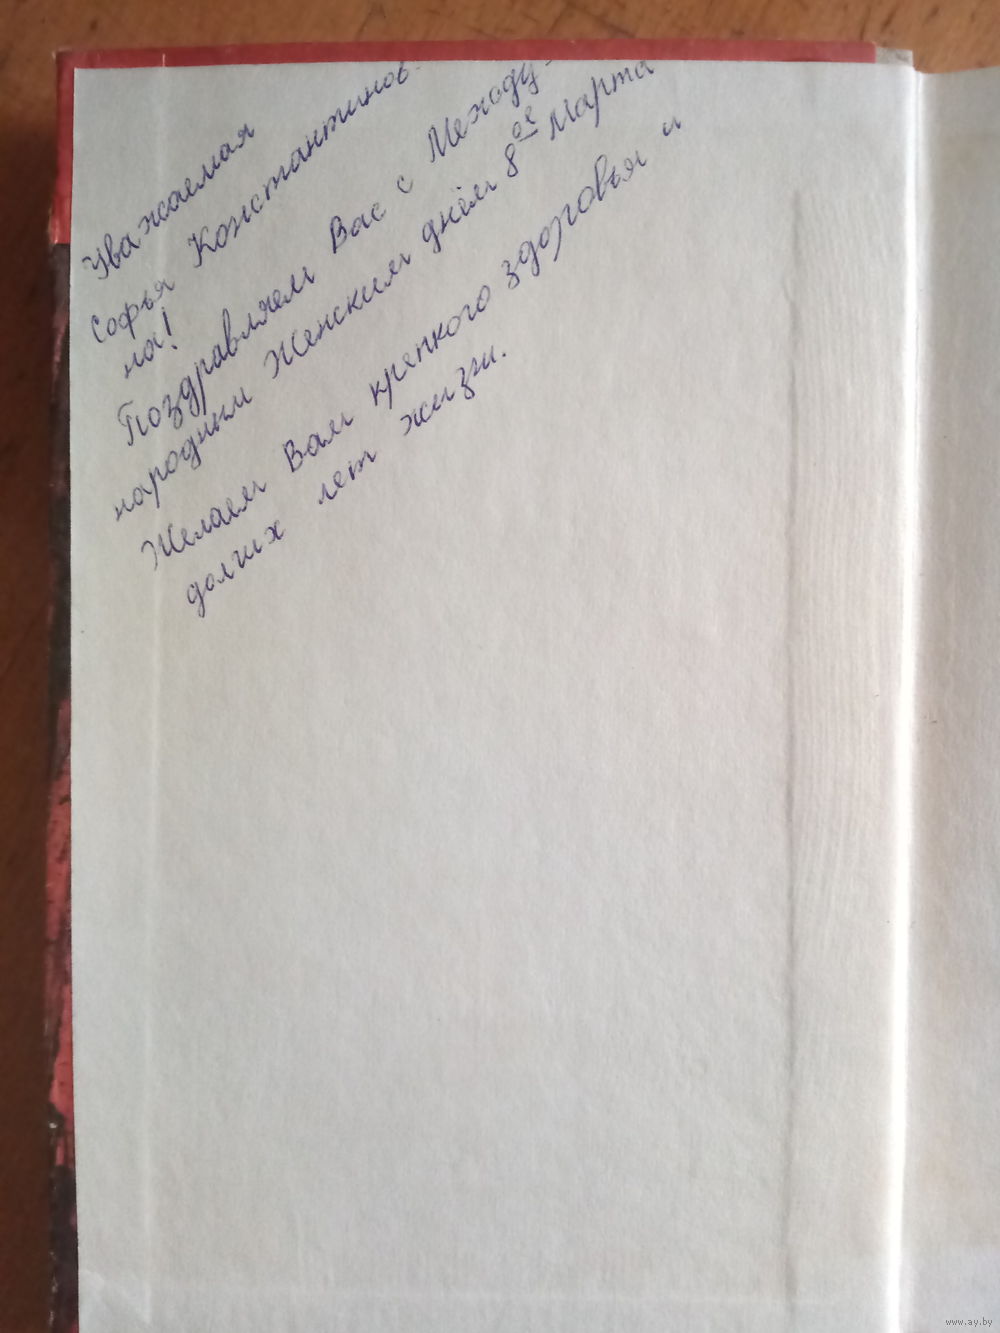 Уважаемая
Софья Константинов-
на!
Поздравляем Вас с Между-
народным Женским днём 8ое Марта
Желаем Вам крепкого здоровья и
долгих лет жизни.
www.ay.by